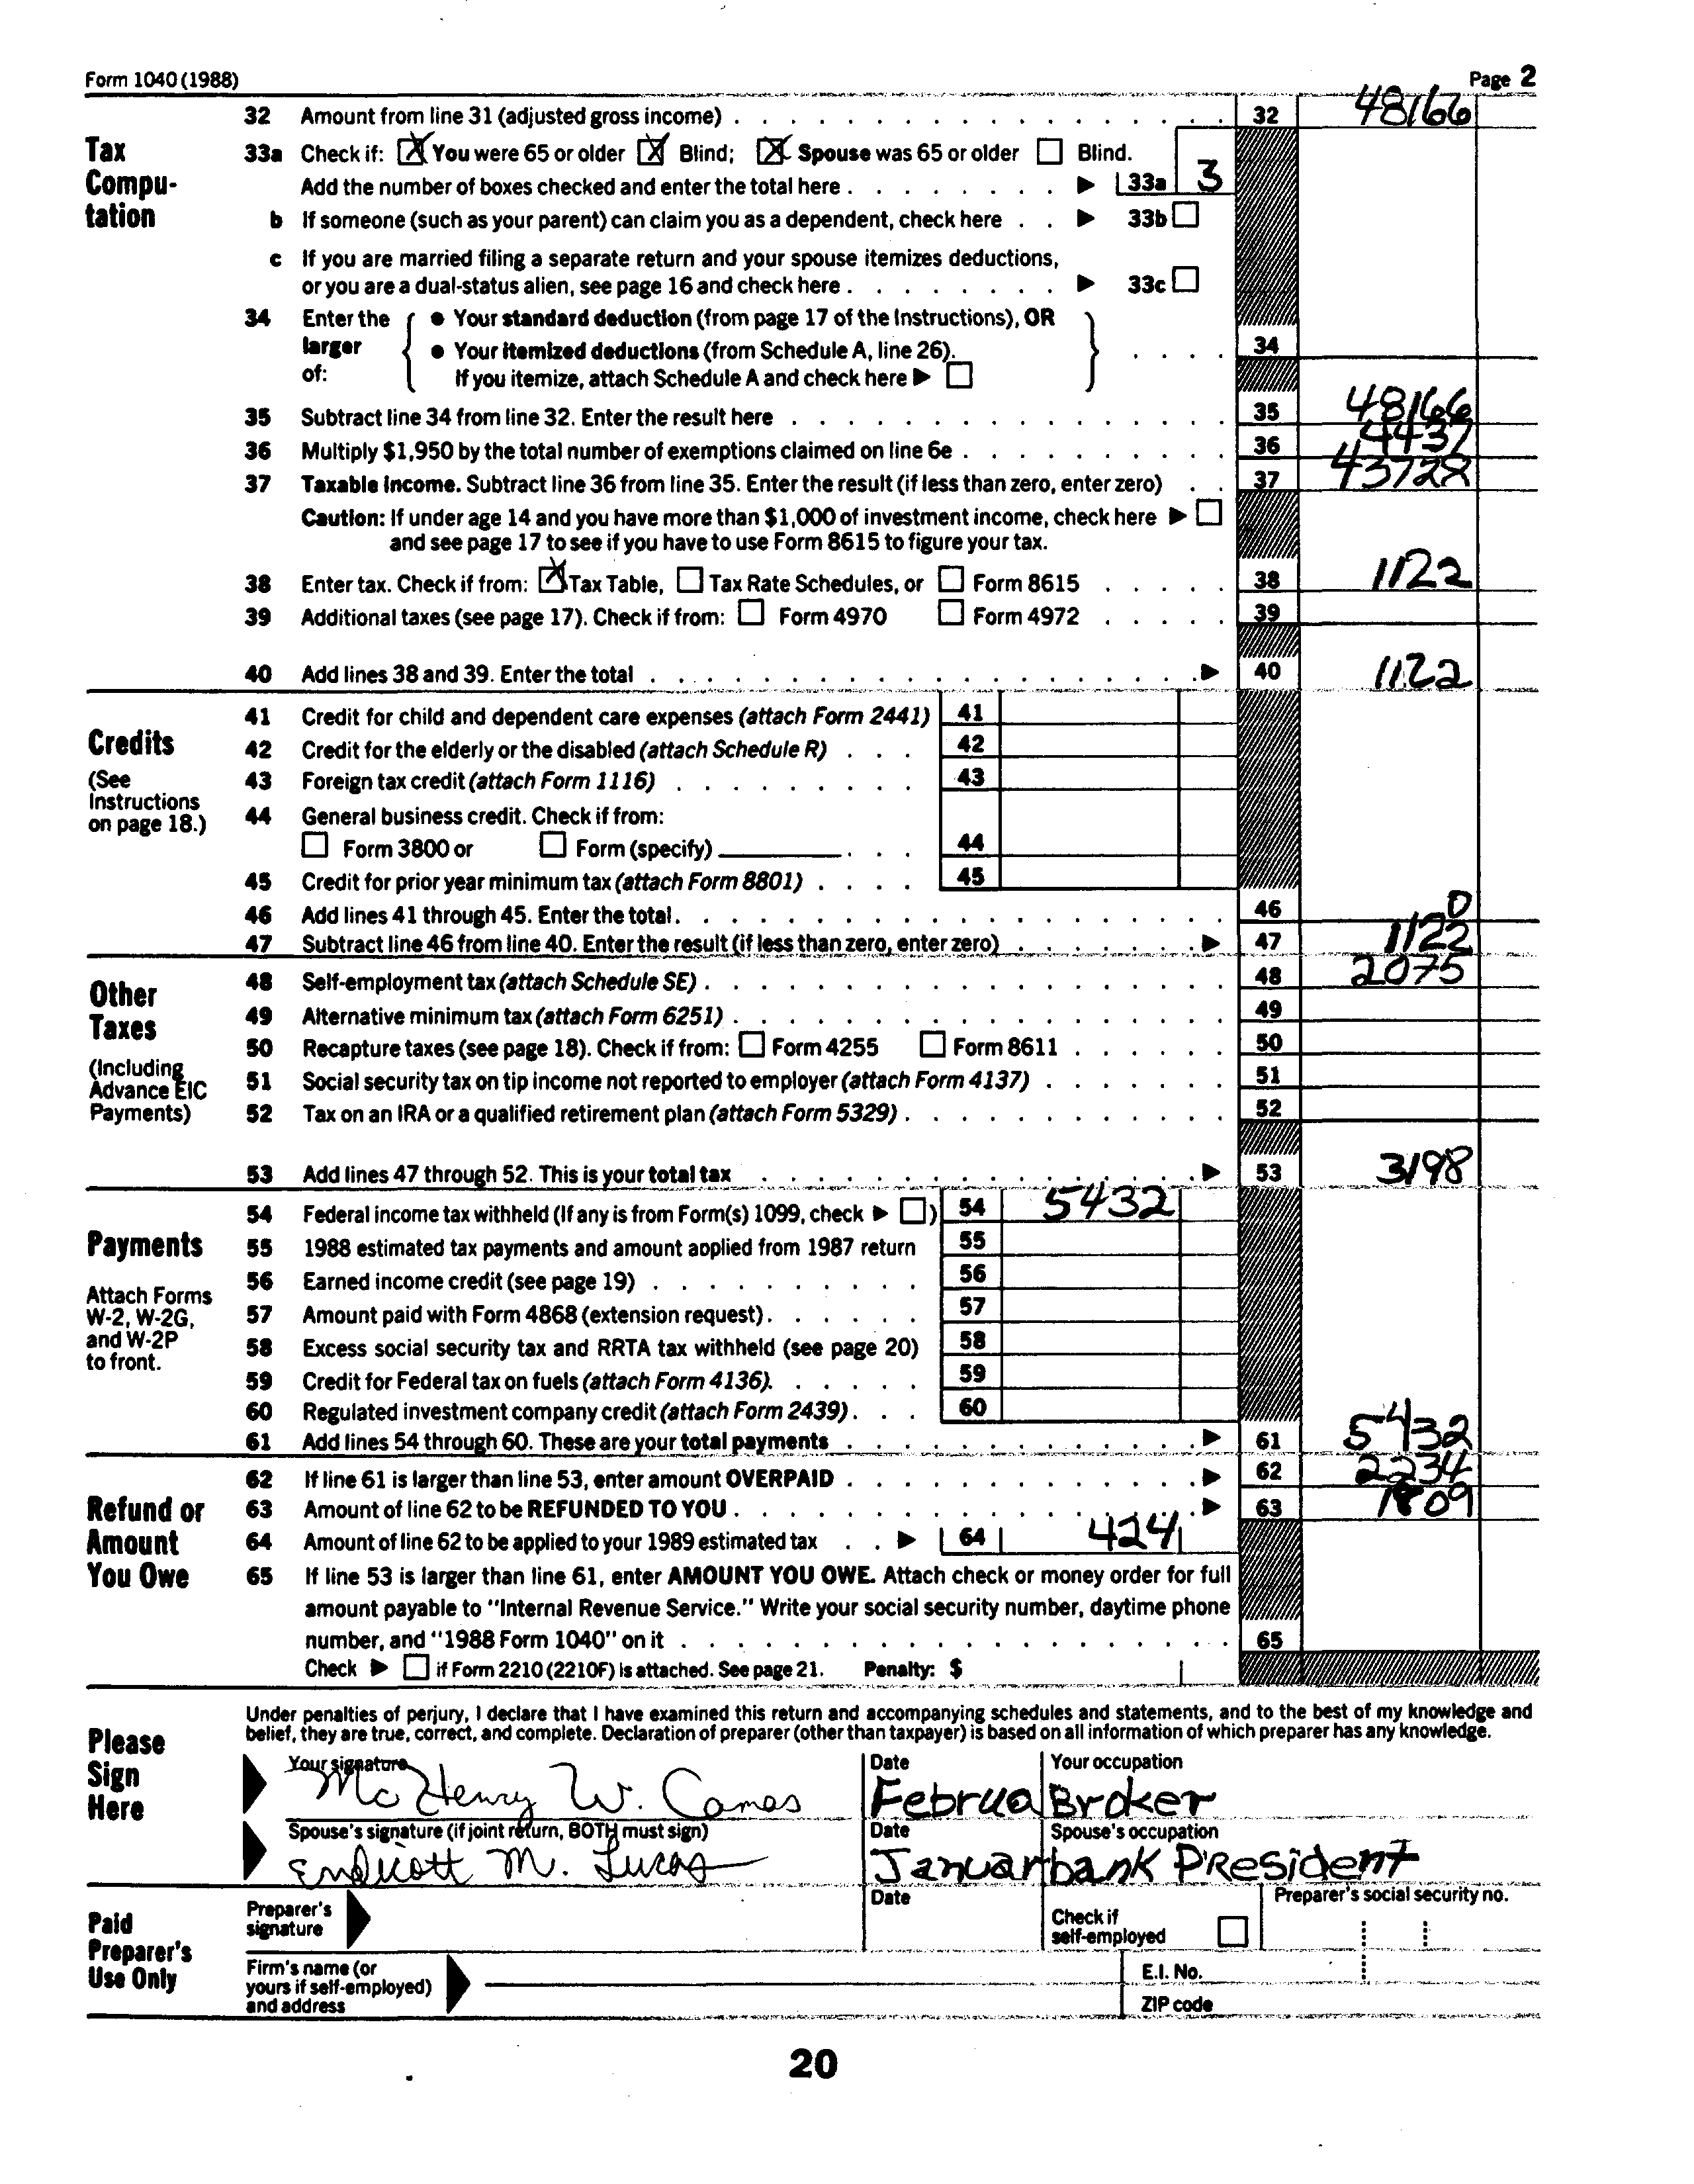 Form 1040 (1988)
Page 2
Tax Compu-tation
32 Amount from line 31 (adjusted gross income) . . . 32 48166
33a Check if: ☒ You were 65 or older ☒ Blind; ☒ Spouse was 65 or older ☐ Blind.
Add the number of boxes checked and enter the total here . . . ▶ 33a 3
b If someone (such as your parent) can claim you as a dependent, check here . . ▶ 33b ☐
c If you are married filing a separate return and your spouse itemizes deductions,
or you are a dual-status alien, see page 16 and check here . . . ▶ 33c ☐
34 Enter the larger of: { ● Your standard deduction (from page 17 of the Instructions), OR
● Your itemized deductions (from Schedule A, line 26). } . . . . 34
If you itemize, attach Schedule A and check here ▶ ☐
35 Subtract line 34 from line 32. Enter the result here . . . 35 48166
36 Multiply $1,950 by the total number of exemptions claimed on line 6e . . . 36 4437
37 Taxable income. Subtract line 36 from line 35. Enter the result (if less than zero, enter zero) . . 37 43728
Caution: If under age 14 and you have more than $1,000 of investment income, check here ▶ ☐
and see page 17 to see if you have to use Form 8615 to figure your tax.
38 Enter tax. Check if from: ☒ Tax Table, ☐ Tax Rate Schedules, or ☐ Form 8615 . . . 38 1122
39 Additional taxes (see page 17). Check if from: ☐ Form 4970 ☐ Form 4972 . . . 39
40 Add lines 38 and 39. Enter the total . . . ▶ 40 1122
Credits
(See Instructions on page 18.)
41 Credit for child and dependent care expenses (attach Form 2441) 41
42 Credit for the elderly or the disabled (attach Schedule R) . . . 42
43 Foreign tax credit (attach Form 1116) . . . 43
44 General business credit. Check if from:
☐ Form 3800 or ☐ Form (specify) . . . 44
45 Credit for prior year minimum tax (attach Form 8801) . . . . 45
46 Add lines 41 through 45. Enter the total . . . 46 0
47 Subtract line 46 from line 40. Enter the result (if less than zero, enter zero) . . . ▶ 47 1122
Other Taxes
(Including Advance EIC Payments)
48 Self-employment tax (attach Schedule SE) . . . 48 2075
49 Alternative minimum tax (attach Form 6251) . . . 49
50 Recapture taxes (see page 18). Check if from: ☐ Form 4255 ☐ Form 8611 . . . 50
51 Social security tax on tip income not reported to employer (attach Form 4137) . . . 51
52 Tax on an IRA or a qualified retirement plan (attach Form 5329) . . . 52
53 Add lines 47 through 52. This is your total tax . . . ▶ 53 3198
Payments
Attach Forms W-2, W-2G, and W-2P to front.
54 Federal income tax withheld (If any is from Form(s) 1099, check ▶ ☐) 54 5432
55 1988 estimated tax payments and amount applied from 1987 return 55
56 Earned income credit (see page 19) . . . 56
57 Amount paid with Form 4868 (extension request) . . . 57
58 Excess social security tax and RRTA tax withheld (see page 20) 58
59 Credit for Federal tax on fuels (attach Form 4136) . . . 59
60 Regulated investment company credit (attach Form 2439) . . . 60
61 Add lines 54 through 60. These are your total payments . . . ▶ 61 5432
Refund or Amount You Owe
62 If line 61 is larger than line 53, enter amount OVERPAID . . . ▶ 62 2234
63 Amount of line 62 to be REFUNDED TO YOU . . . ▶ 63 1809
64 Amount of line 62 to be applied to your 1989 estimated tax . . ▶ 64 424
65 If line 53 is larger than line 61, enter AMOUNT YOU OWE. Attach check or money order for full
amount payable to "Internal Revenue Service." Write your social security number, daytime phone
number, and "1988 Form 1040" on it . . . 65
Check ▶ ☐ if Form 2210 (2210F) is attached. See page 21. Penalty: $
Please Sign Here
Under penalties of perjury, I declare that I have examined this return and accompanying schedules and statements, and to the best of my knowledge and
belief, they are true, correct, and complete. Declaration of preparer (other than taxpayer) is based on all information of which preparer has any knowledge.
Your signature Date Your occupation
McHenry W. Camas Februa Broker
Spouse's signature (if joint return, BOTH must sign) Date Spouse's occupation
Endicott M. Lucas Januar bank PResident
Paid Preparer's Use Only
Preparer's signature Date Check if self-employed ☐ Preparer's social security no.
Firm's name (or yours if self-employed) and address E.I. No.
ZIP code
20